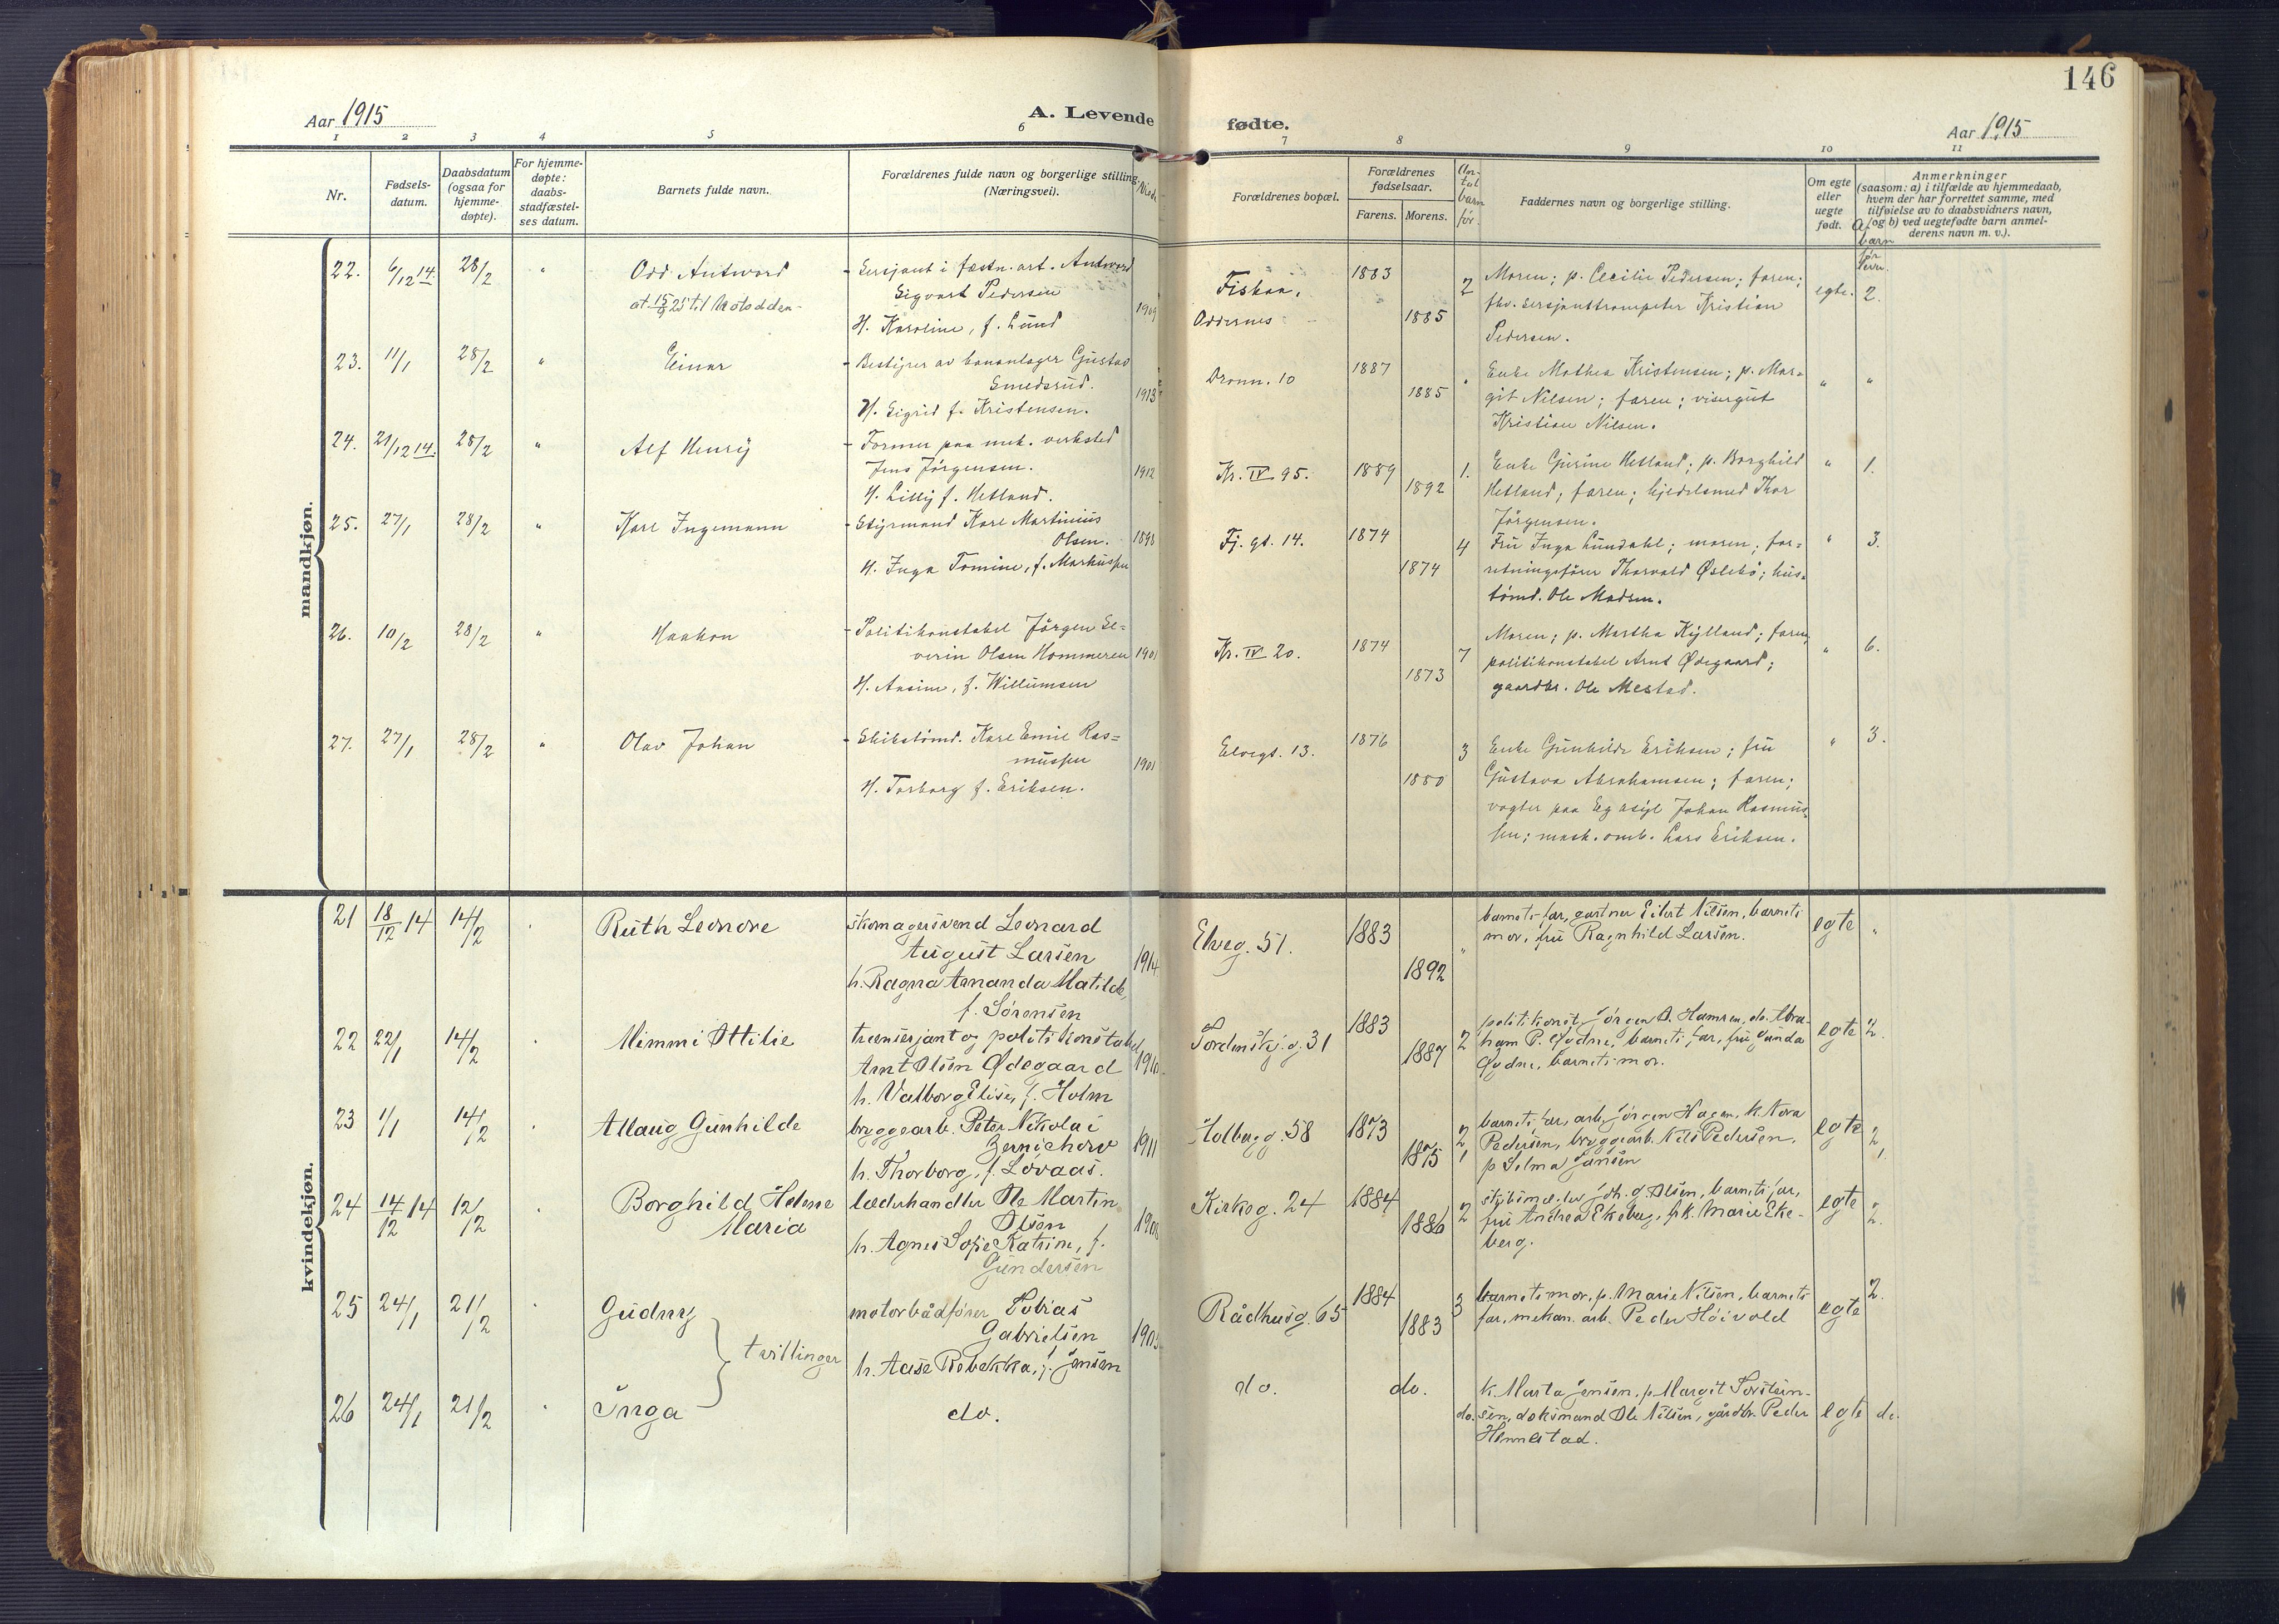 146
Aar 1915
A. Levende
fødte.
Aar 1915
1 2 3 4 5 6 7 8 9 10 11
Nr.
Fødsels-
datum.
Daabsdatum
(ogsaa for
hjemme-
døpte).
For hjemme-
døpte:
daabs-
stadfæstel-
ses datum.
Barnets fulde navn.
Forældrenes fulde navn og borgerlige stilling
(Næringsvei).
Forældrenes bopæl.
Forældrenes
fødselsaar.
Farens. Morens.
An-
tal
barn
før.
Faddernes navn og borgerlige stilling.
Om egte
eller
uegte
født.
Anmerkninger
(saasom: a) i tilfælde av hjemmedaab,
hvem der har forrettet samme, med
tilføielse av to daabsvidners navn,
og b) ved uegtefødte barn anmel-
derens navn m. v.).
mandkjøn.
22. 6/12 14 28/2 " Odd Antword - Sersjant i fæstn. art. Antword
at. 15/9 25 til Notodden
Sigvart Pedersen 1909
H. Karoline, f. Lund
Fiskaa,
Oddernes
1883 1885 2
Moren; p. Cecilie Pedersen; faren;
fhv. sersjanttrompeter Kristian
Pedersen.
egte. 2.
23. 11/1 28/2 " Einar - Bestyrer av bananlager Gustav
Smedsrud. 1913
H. Sigrid f. Kristensen.
Dronn. 10 1887 1885 "
Enke Mathea Kristensen; p. Mar=
git Nilsen; faren; visergut
Kristian Nilsen.
" "
24. 21/12 14. 28/2 " Alf Henry - Former paa mek. verksted
Jens Jörgensen. 1912
H. Lilly f. Hetland.
Kr. IV 95. 1889 1892 1.
Enke Gjerine Hetland; p. Borghild
Hetland; faren; kjedelsmed Thor
Jörgensen.
" 1.
25. 27/1 28/2 " Karl Ingemann - Styrmand Karl Martinius
Olsen. 1898
H. Inga Tomine, f. Markussen
Fj. gt. 14. 1874 1874 4
Fru Inga Lundahl; moren; for=
retningsfører Thorvald Øslebø; hus=
tömd. Ole Madsen.
" 3.
26. 10/2 28/2 " Haakon - Politikonstabel Jörgen Se=
verin Olsen Hommeren 1901
H. Ansine, f. Willumsen
Kr. IV 20. 1874 1873 7
Moren; p. Martha Kylland; faren;
politikonstabel Arnt Ødegaard;
gaardbr. Ole Mestad.
" 6.
27. 27/1 28/2 " Olav Johan - Skibstömd. Karl Emil Ras=
mussen 1901
H. Torborg f. Eriksen.
Elvegt. 13. 1876 1880 3
Enke Gunhilde Eriksen; fru
Gustava Abrahamsen; faren;
vogter paa Eg asyl Johan Rasmus=
sen; mask. omb. Lars Eriksen.
" 3.
kvindekjøn.
21 18/12 14 14/2 " Ruth Leonore skomagersvend Leonard
August Larsen 1914
h. Ragna Amanda Matilde,
f. Sørensen
Elveg. 51. 1883 1892 "
barnets far, gartner Eilert Nilsen, barnets
mor, fru Ragnhild Larsen.
egte "
22 22/1 14/2 " Mimmi Ottilie trænsersjant og politikonstabel
Arnt Olsen Ødegaard 1910
h. Valborg Elise, f. Holm
Tordenskj. g. 31 1883 1887 2
politikonst. Jörgen O. Hamren, do. Abra-
ham P. Øydne, barnets far, fru Gunda
Øydne, barnets mor.
egte 2.
23 1/1 14/2 " Allaug Gunhilde bryggearb. Peter Nikolai
Zernichow 1911
h. Thorborg, f. Løvaas.
Holberg g. 58 1873 1875 2
barnets far, arb. Jörgen Hagen, k. Nora
Pedersen, bryggearb. Nils Pedersen,
p. Selma Jansen
egte 2
24 14/12 14 12/2 " Borghild Helene
Maria
læderhandler Ole Martin
Olsen 1908
h. Agnes Sofie Katrine, f.
Gundersen
Kirkeg. 24 1884 1886 2
Joh. G. Olsen, barnets far,
fru Andrea Ekeberg, frk. Marie Eke-
berg.
egte 2.
25 24/1 21/2 " Gudny motorbådfører Tobias
Gabrielsen 1905
h. Aase Rebekka, f. Jensen
twillinger
Rådhusg. 65 1884 1883 3
barnets mor, p. Marie Nilsen, barnets
far, mekan. arb. Peder Höivold
egte 2.
26 24/1 21/2 " Inga do.
do. do. do.
k. Marta Jensen, p. Margit Torstein-
sen, doksmand Ole Nilsen, gårdbr. Peder
Hennestad.
egte do.